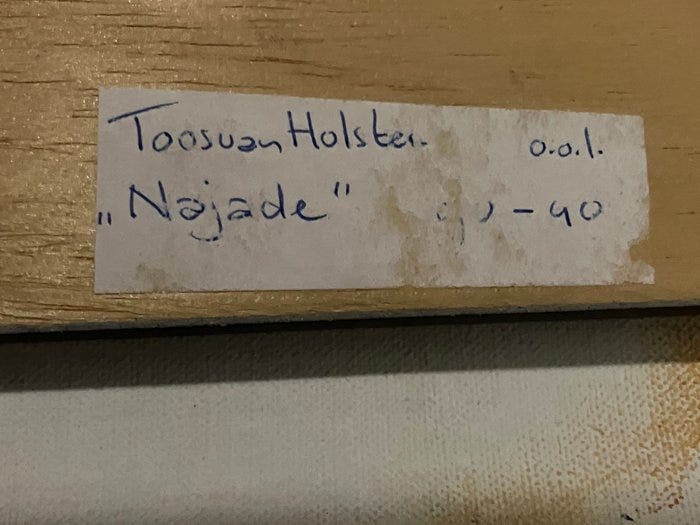 Toos van Holstein o.o.l.
„Najade” - 40